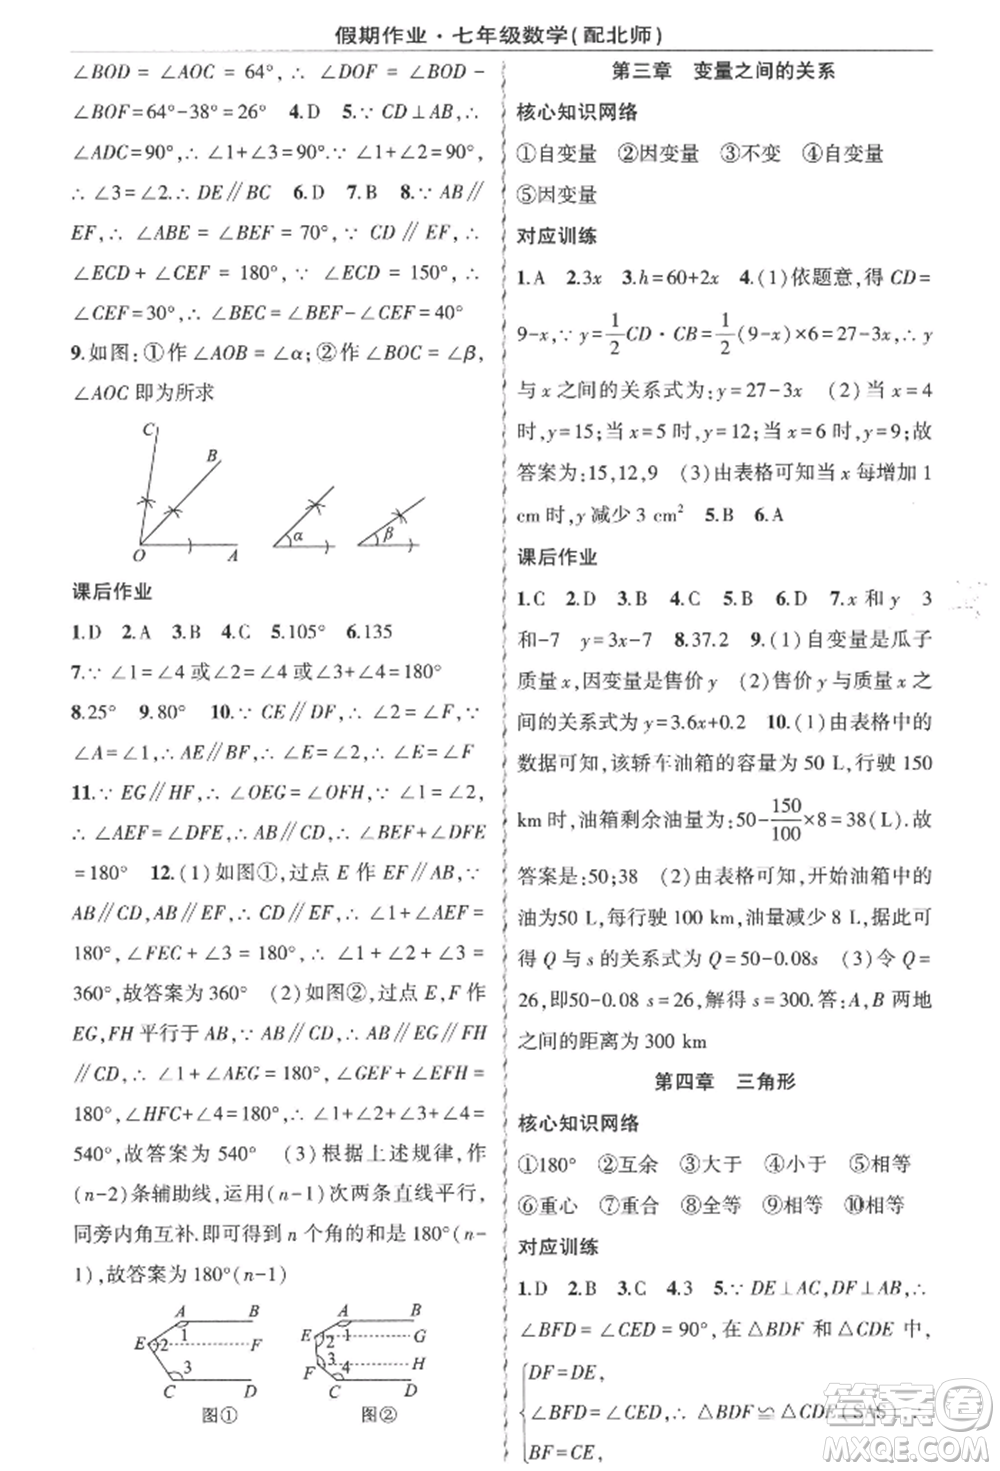 假期作业·七年级数学(配北师)
∠BOD = ∠AOC = 64°,∴ ∠DOF = ∠BOD -
∠BOF=64°-38°=26° 4.D 5.∵ CD⊥AB,∴
∠ADC=90°,∴ ∠1+∠3=90°.∵ ∠1+∠2=90°,
∴ ∠3=∠2.∴ DE∥BC 6.D 7.B 8.∵ AB∥
EF,∴ ∠ABE = ∠BEF = 70°,∵ CD∥EF,∴
∠ECD + ∠CEF = 180°,∵ ∠ECD = 150°,∴
∠CEF=30°,∴ ∠BEC= ∠BEF-∠CEF=40°
9.如图:①作∠AOB=∠α;②作∠BOC=∠β,
∠AOC 即为所求
C
B
O
A
α
β
课后作业
1.D 2.A 3.B 4.C 5.105° 6.135
7.∵ ∠1=∠4 或∠2=∠4 或∠1+∠4=180°
8.25° 9.80° 10.∵ CE∥DF,∴ ∠2=∠F,∵
∠A=∠1,∴ AE∥BF,∴ ∠E=∠2,∴ ∠E=∠F
11.∵ EG∥HF,∴ ∠OEG=∠OFH,∵ ∠1=∠2,
∴ ∠AEF=∠DFE,∴ AB∥CD,∴ ∠BEF+∠DFE
=180° 12.(1)如图①,过点 E 作 EF∥AB,∵
AB∥CD,∴ AB∥EF∥CD,∴ ∠1+∠AEF=
180°,∠FEC + ∠3 = 180°,∴ ∠1 + ∠2 + ∠3 =
360°,故答案为 360° (2)如图②,过点 E,F 作
EG,FH 平行于 AB,∵ AB∥CD,∴ AB∥EG∥FH
∥CD,∴ ∠1 + ∠AEG = 180°,∠GEF + ∠EFH =
180°,∠HFC+∠4=180°,∴ ∠1+∠2+∠3+∠4=
540°,故答案为 540° (3)根据上述规律,作
(n-2)条辅助线,运用(n-1)次两条直线平行,
同旁内角互补.即可得到 n 个角的和是 180°(n-
1),故答案为 180°(n-1)
A B
E 1 2 F
3
C D
图①
A B
E 1 2 G
F 3 H
4
C D
图②
第三章 变量之间的关系
核心知识网络
①自变量 ②因变量 ③不变 ④自变量
⑤因变量
对应训练
1.A 2.3x 3.h=60+2x 4.(1)依题意,得 CD=
9-x,∵ y=1/2CD·CB=1/2(9-x)×6=27-3x,∴ y
与 x 之间的关系式为:y=27-3x (2)当 x=4
时,y=15;当 x=5 时,y=12;当 x=6 时,y=9;故
答案为:15,12,9 (3)由表格可知当 x 每增加 1
cm 时,y 减少 3 cm² 5.B 6.A
课后作业
1.C 2.D 3.B 4.C 5.B 6.D 7.x 和 y 3
和-7 y=3x-7 8.37.2 9.(1)自变量是瓜子
质量 x,因变量是售价 y (2)售价 y 与质量 x 之
间的关系式为 y=3.6x+0.2 10.(1)由表格中的
数据可知,该轿车油箱的容量为 50 L,行驶 150
km 时,油箱剩余油量为:50-150/100×8=38(L).故
答案是:50;38 (2)由表格可知,开始油箱中的
油为50 L,每行驶 100 km,油量减少 8 L,据此可
得 Q 与 s 的关系式为 Q=50-0.08s (3)令 Q=
26,即50-0.08 s=26,解得 s=300.答:A,B 两地
之间的距离为 300 km
第四章 三角形
核心知识网络
①180° ②互余 ③大于 ④小于 ⑤相等
⑥重心 ⑦重合 ⑧全等 ⑨相等 ⑩相等
对应训练
1.D 2.B 3.C 4.3 5.∵ DE⊥AC,DF⊥AB,∴
∠BFD = ∠CED = 90°,在 △BDF 和 △CDE 中,
DF=DE,
∠BFD=∠CED,∴ △BDF≌△CDE(SAS),∴
BF=CE,
答案圈
MXQE.COM